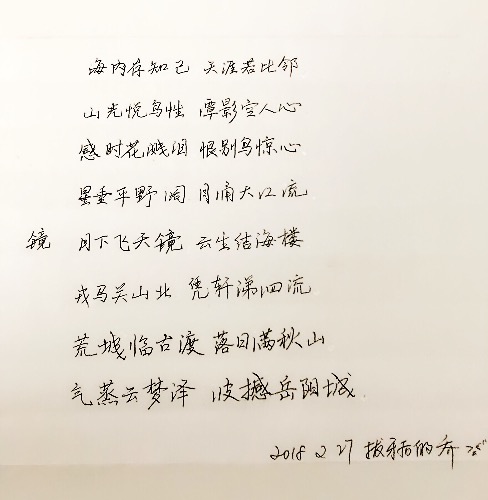 海内存知己 天涯若比邻
山光悦鸟性 潭影空人心
感时花溅泪 恨别鸟惊心
星垂平野阔 月涌大江流
镜 月下飞天镜 云生结海楼
戎马关山北 凭轩涕泗流
荒城临古渡 落日满秋山
气蒸云梦泽 波撼岳阳城
2018 2 27 拔牙后的乔